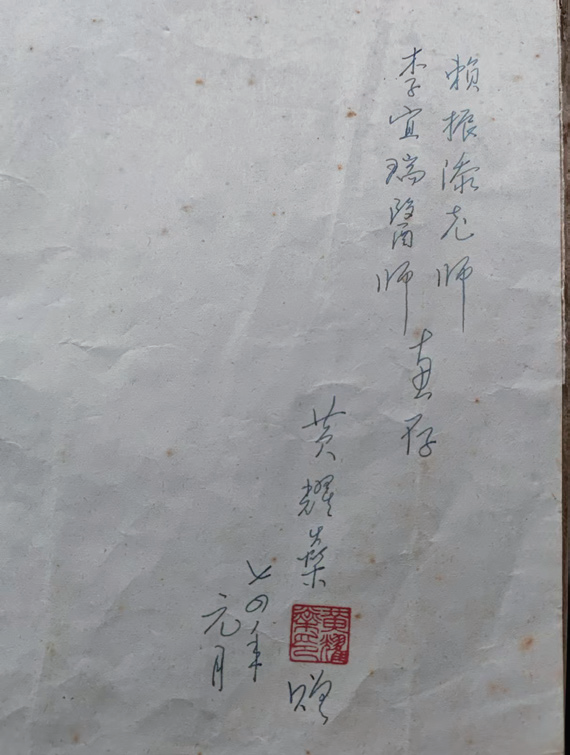 賴振添老师
李宜瑞醫师
惠存
黃耀榮
黃耀
榮印
贈
七四年
元月